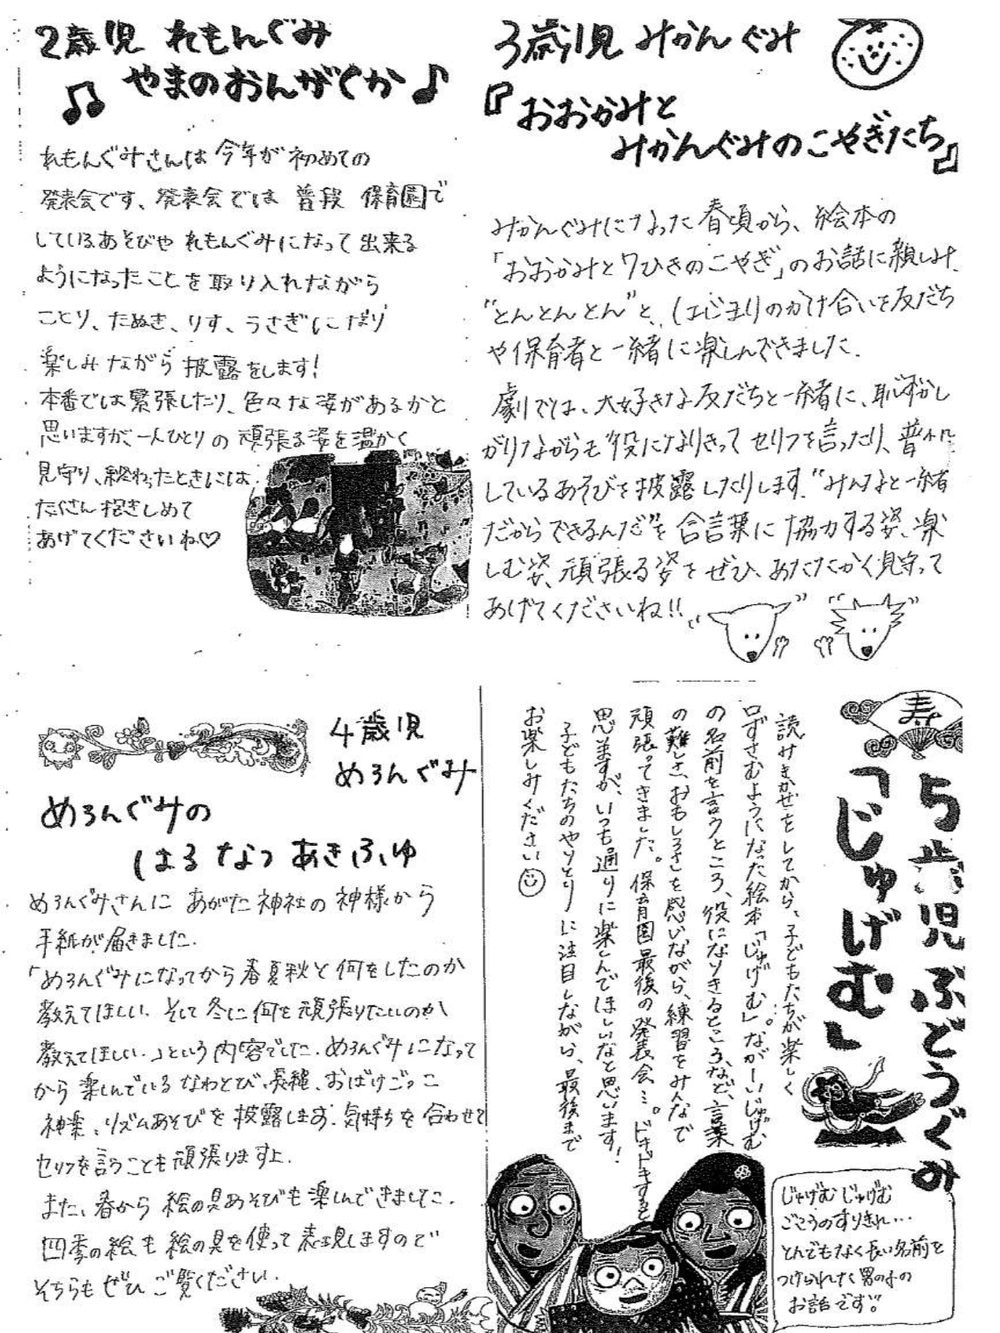 2歳児 れもんぐみ
やまのおんがくか
れもんぐみさんは今年が初めての
発表会です、発表会では 普段 保育園で
しているあそびや れもんぐみになって出来る
ようになったことを取り入れながら
ことり、たぬき、りす、うさぎになり
楽しみながら 披露をします!
本番では緊張したり、色々な姿があるかと
思いますが、一人ひとりの 頑張る姿を温かく
見守り、終わったときには
たくさん抱きしめて
あげてくださいね♡
3歳児 みかんぐみ
『おおかみと
みかんぐみのこやぎたち』
みかんぐみになった春頃から、絵本の
「おおかみと7ひきのこやぎ」のお話に親しみ、
"とんとんとん"と、はじまりのかけ合いを友だち
や保育者と一緒に楽しんできました。
劇では、大好きな友だちと一緒に、恥ずかし
がりながらも役になりきってセリフを言ったり、普段
しているあそびを披露したりします。"みんなと一緒
だからできるんだ"を合言葉に協力する姿、楽
しむ姿、頑張る姿をぜひ、あたたかく見守って
あげてくださいね!!
4歳児
めろんぐみ
めろんぐみの
はる なつ あき ふゆ
めろんぐみさんに あがた神社の神様から
手紙が届きました。
「めろんぐみになってから春夏秋と何をしたのか
教えてほしい。そして冬に何を頑張りたいのか
教えてほしい。」という内容でした。めろんぐみになって
から 楽しんでいる なわとび、長縄、おばけごっこ
神楽、リズムあそびを披露します。気持ちを合わせて
セリフを言うことも頑張りますよ。
また、春から 絵の具あそびも楽しんできました。
四季の絵も 絵の具を使って 表現しますので
そちらも ぜひ ご覧ください。
寿
5歳児 ぶどうぐみ
「じゅげむ」
読みきかせをしてから、子どもたちが楽しく
口ずさむようになった絵本「じゅげむ」。ながーいじゅげむ
の名前を言うところ、役になりきるところ、など、言葉
の難しさ、おもしろさを感じながら、練習をみんなで
頑張ってきました。保育園最後の発表会…。ドキドキすると
思いますが、いつも通りに楽しんでほしいなと思います!
子どもたちのやりとりに注目しながら、最後まで
お楽しみください
じゅげむ じゅげむ
ごこうのすりきれ…
とんでもなく長い名前を
つけられた男の子の
お話です!!